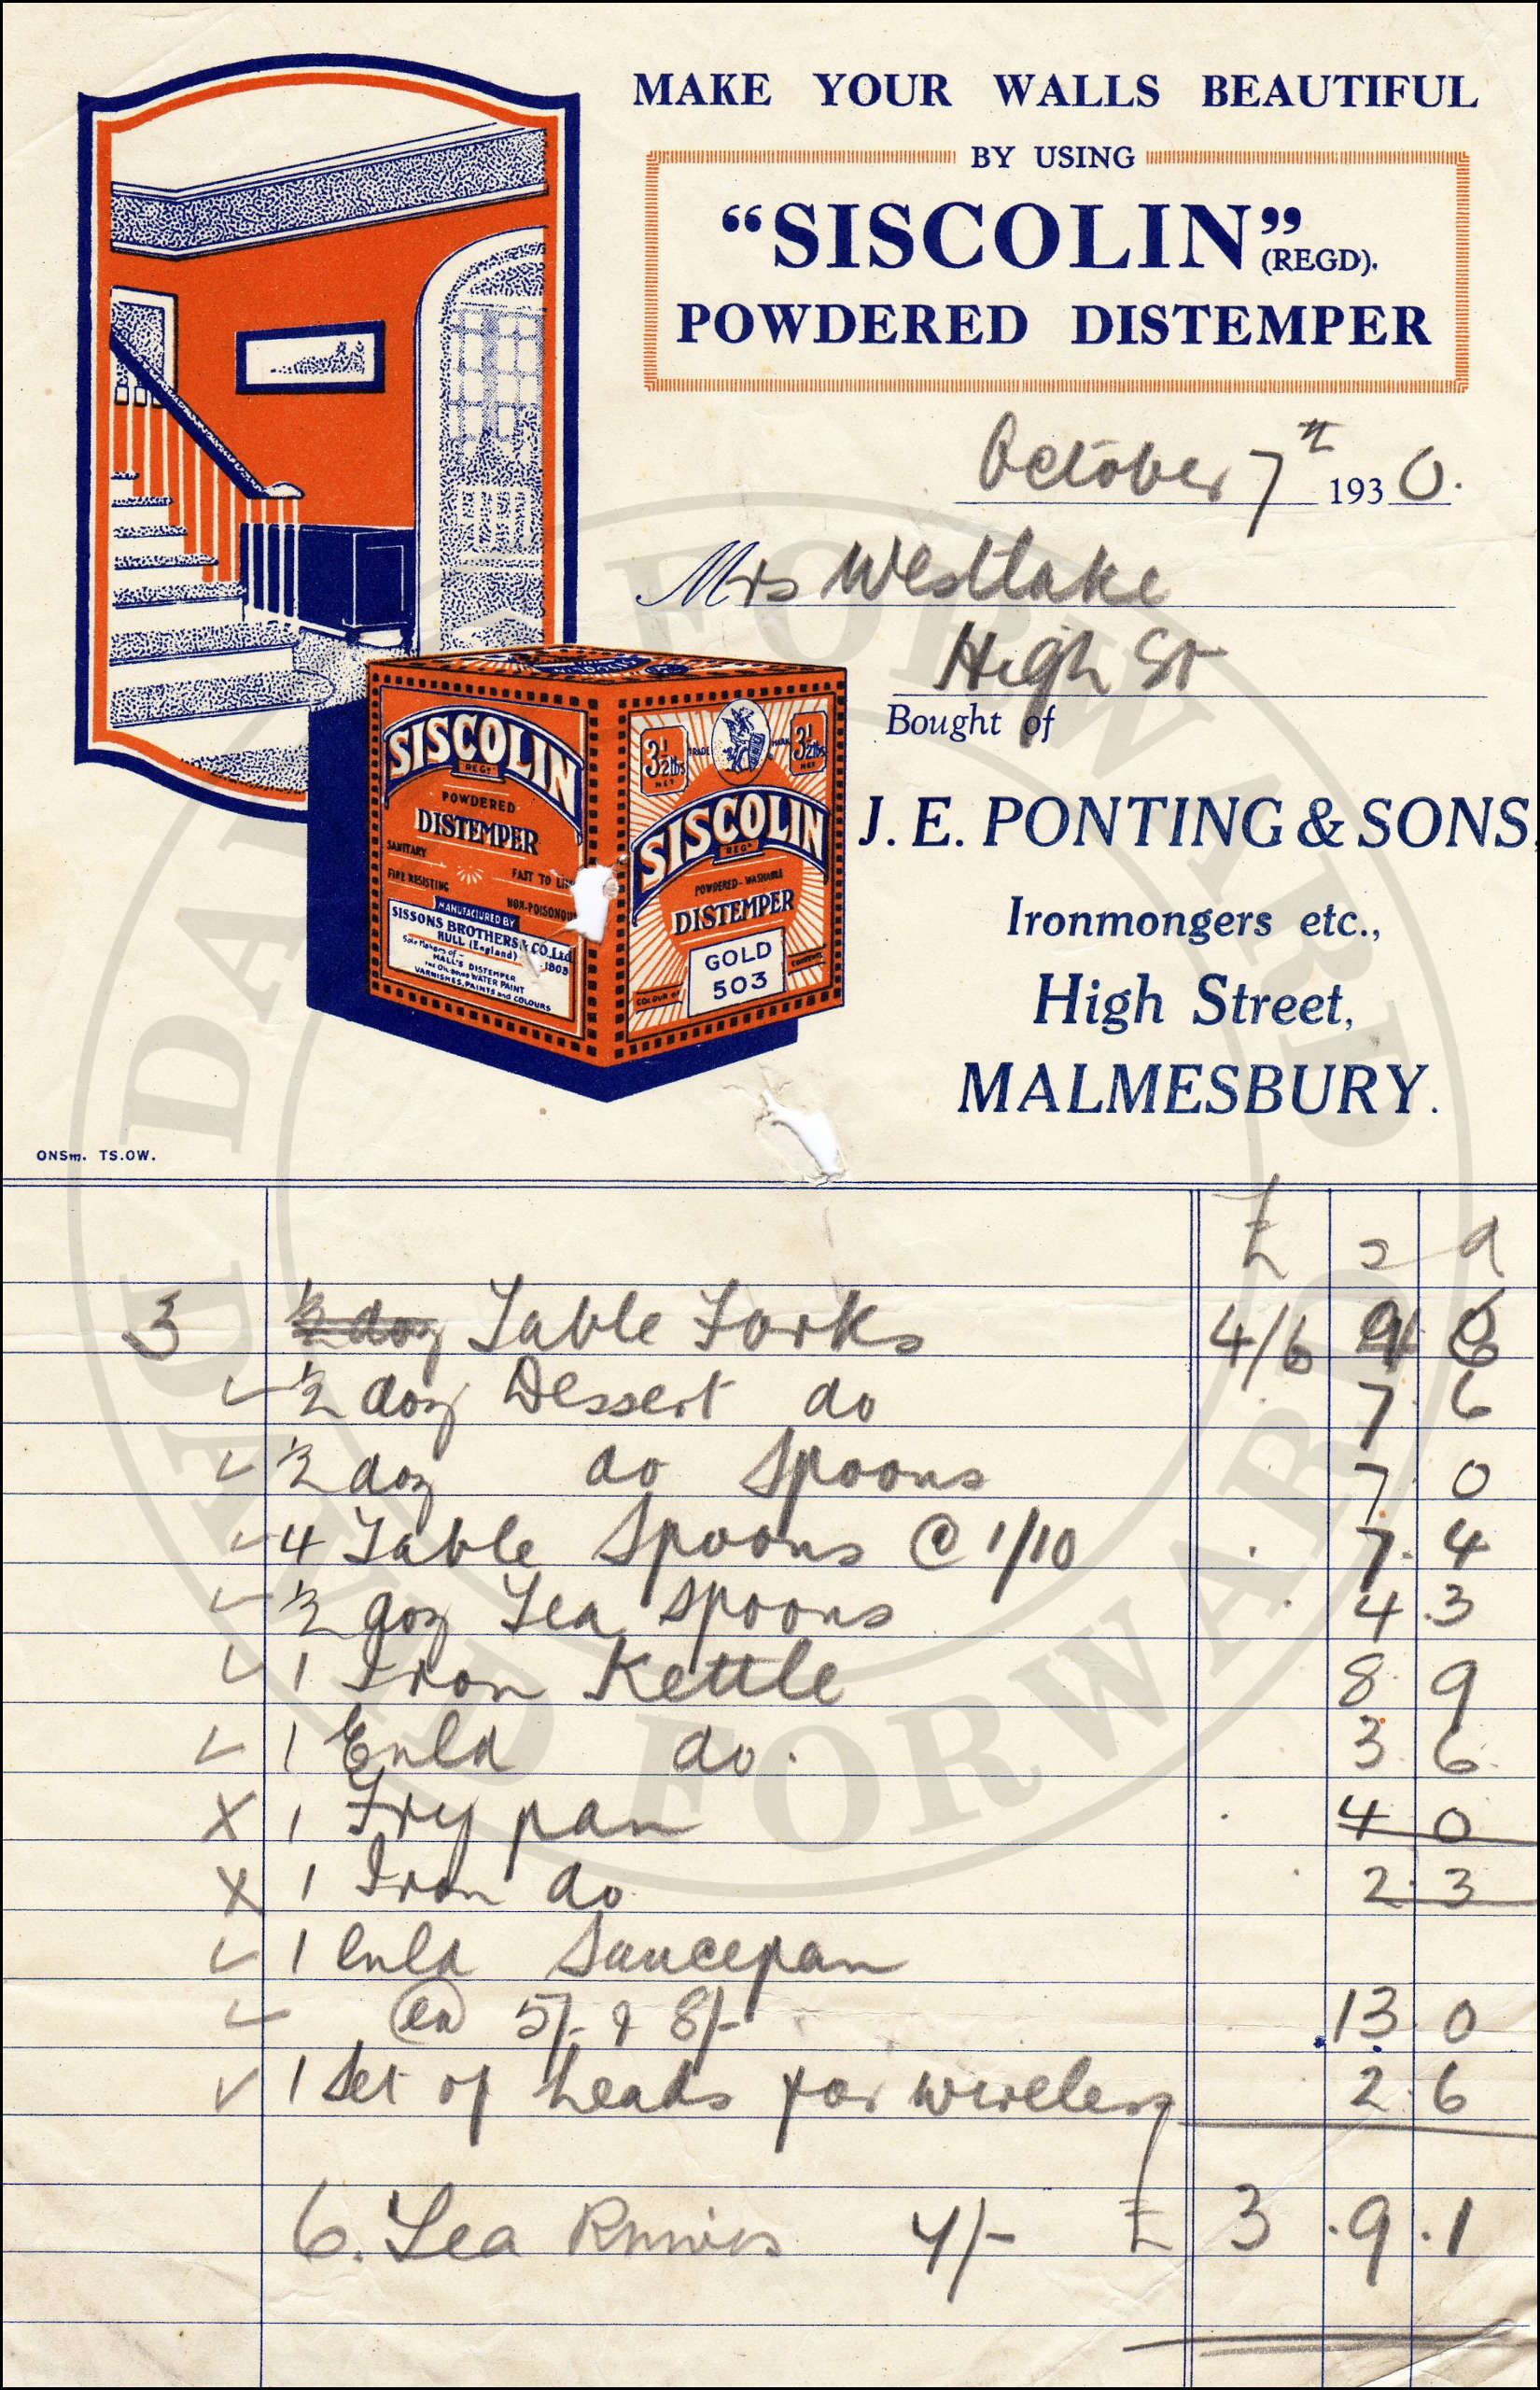 MAKE YOUR WALLS BEAUTIFUL
BY USING
“SISCOLIN” (REGD).
POWDERED DISTEMPER
October 7th 1930.
Mrs Westlake
High St
Bought of
J. E. PONTING & SONS,
Ironmongers etc.,
High Street,
MALMESBURY.
SISCOLIN
REGD
POWDERED
DISTEMPER
SANITARY
FIRE RESISTING
FAST TO
NON-POISONOUS
MANUFACTURED BY
SISSONS BROTHERS & CO. Ltd.
HULL (England) 1803
Sole Makers of
HALL'S DISTEMPER
WATER PAINT
VARNISHES, PAINTS and COLOURS
3½ lbs NET
TRADE MARK
3½ lbs NET
SISCOLIN
REGD
POWDERED-WASHABLE
DISTEMPER
COLOUR OF
GOLD
503
CONTENTS
ONSm. TS.OW.
£ s d
3 ½ doz Table Forks 4/6 9 6
½ doz Dessert do 7 6
½ doz do Spoons 7 0
4 Table Spoons @ 1/10 7. 4
½ doz Tea spoons 4.3
1 Iron Kettle 8 9
1 Enld do. 3 6
X 1 Fry pan 4 0
X 1 Iron do 2 3
1 Enld Saucepan
@ 5/- & 8/- 13 0
1 Set of Leads for wireless 2.6
6. Tea Knives 4/- £ 3 .9 .1
DAY FORWARD